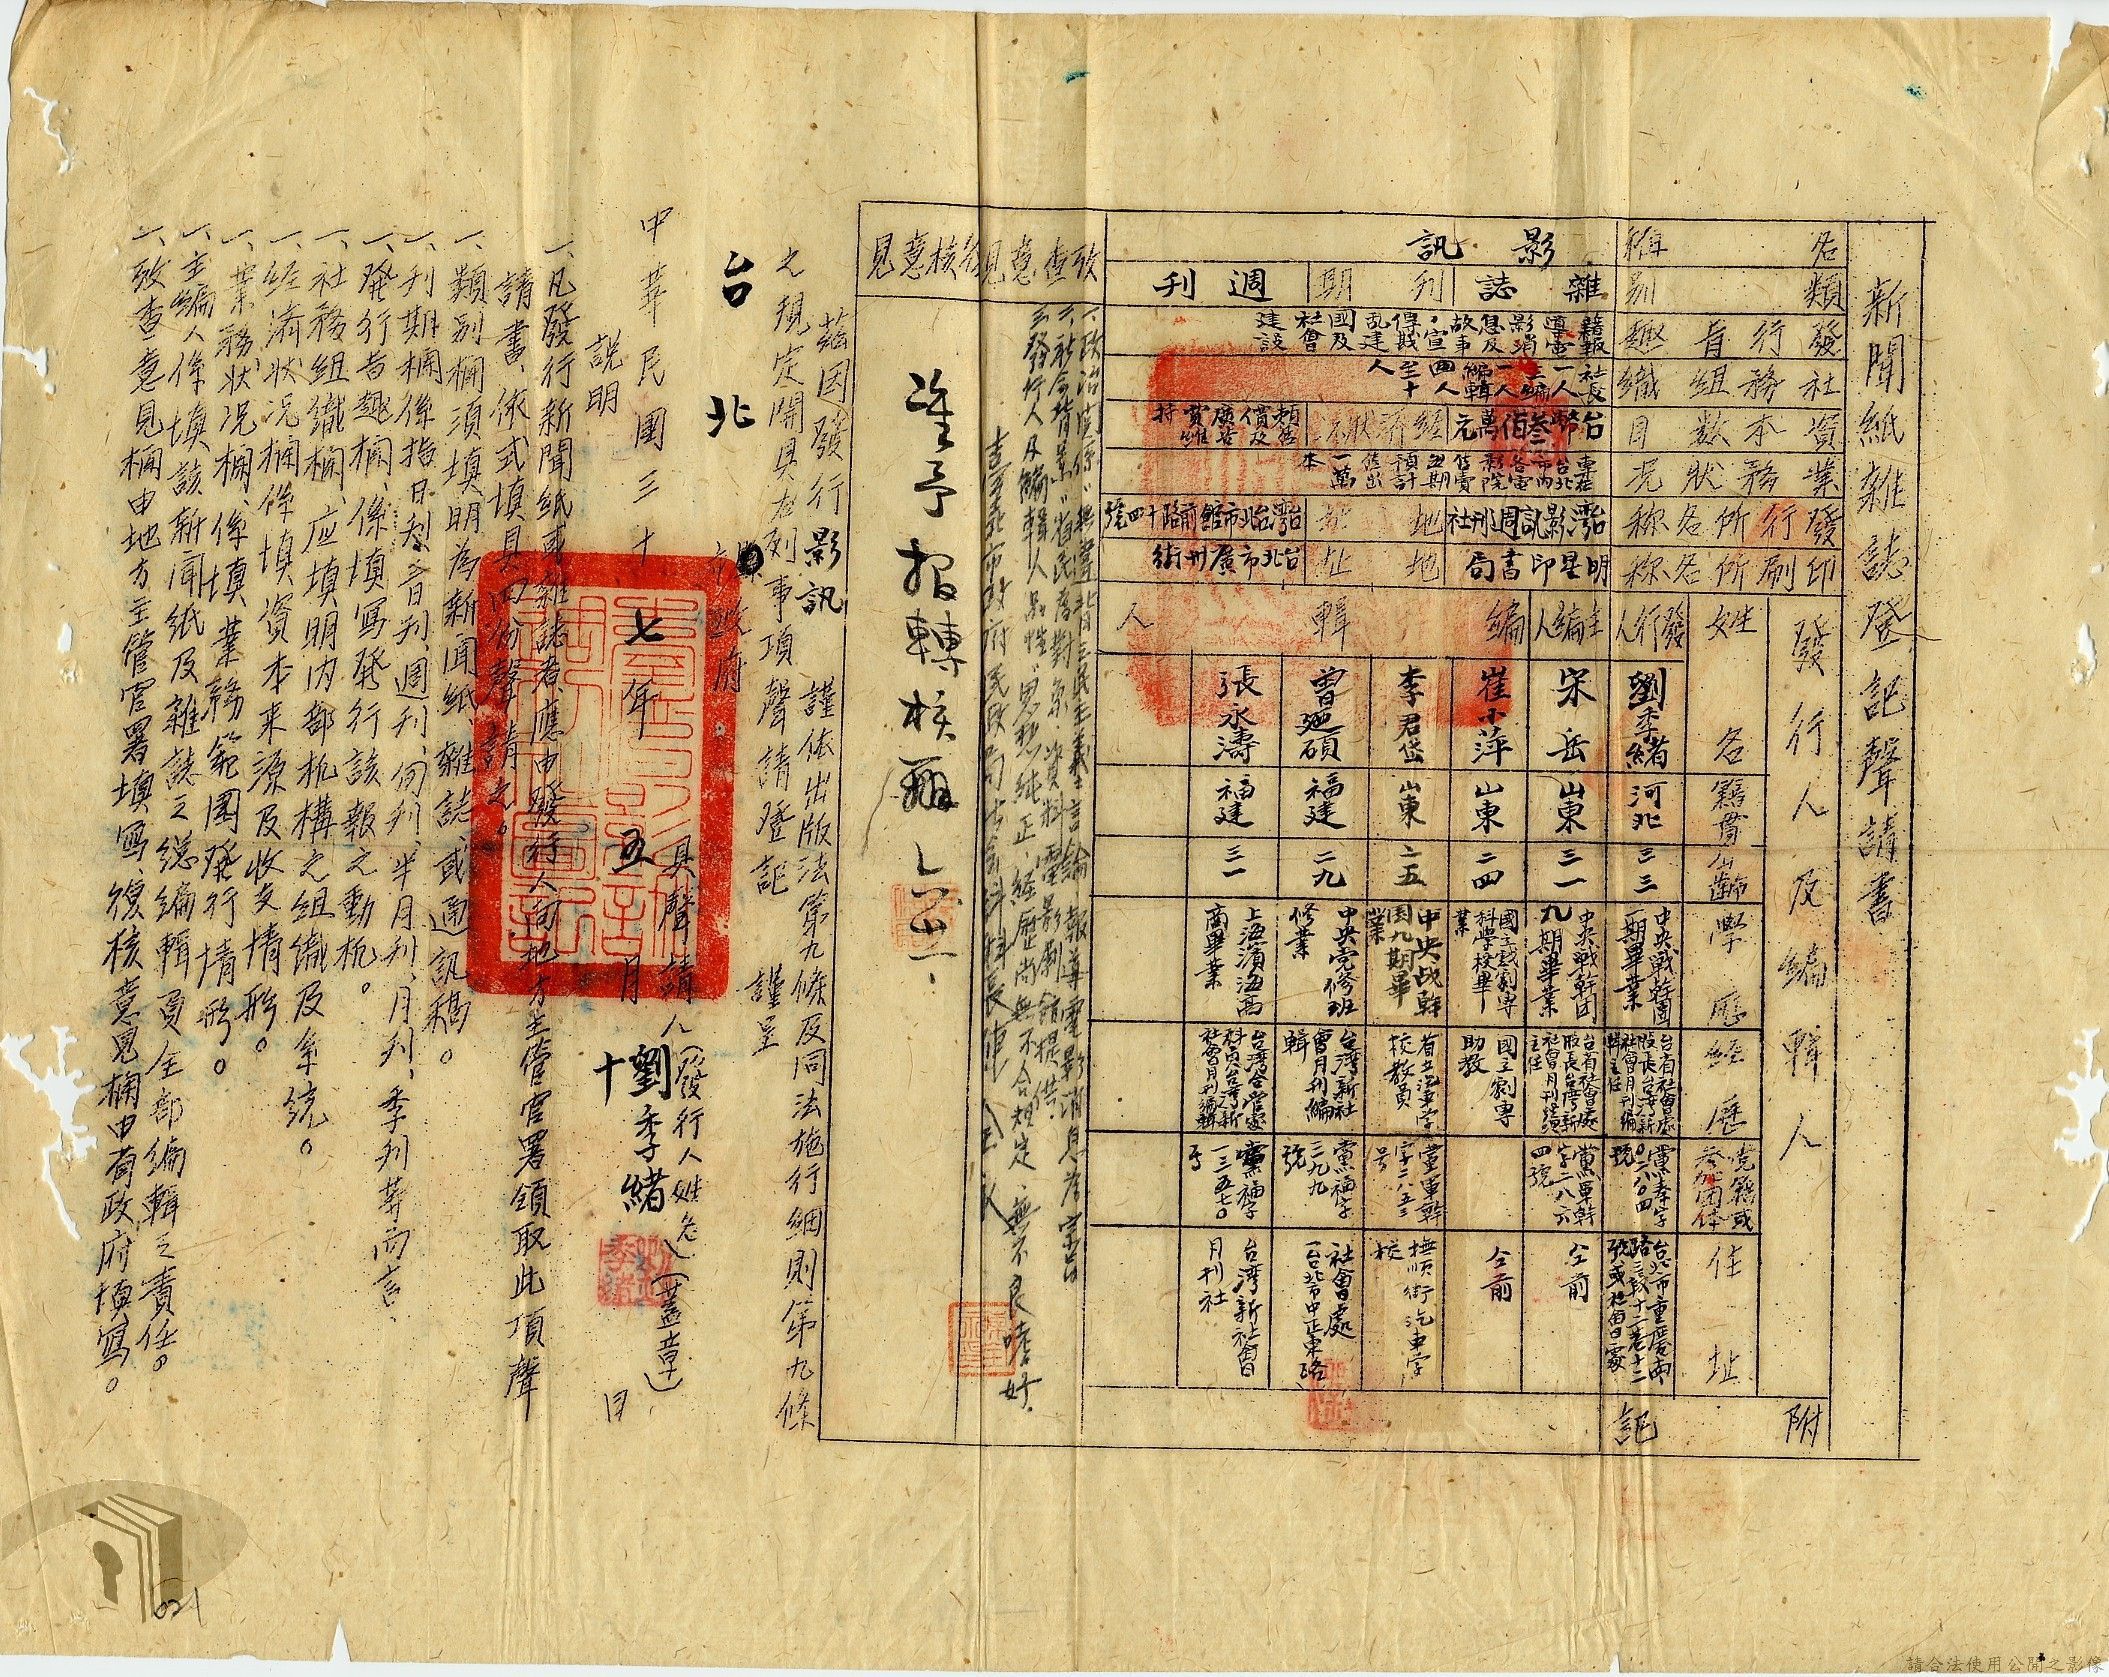 新聞紙雜誌登記聲請書
名稱 影訊
類別 雜誌 刊期 週刊
發行旨趣 籍報導電影消息及故事，宣傳戡亂建國及社會建設
社務組織 社長一人主編一人編輯四人至十人
資本數目 台幣叁佰萬元 經濟狀況 賴售價及廣告費維持
業務狀況 專在台北市內各電影院售賣每期預計售出一萬本
發行所名稱 台灣影訊週刊社 地址 台灣台北市館前路十四號
印刷所名稱 明星印書局 地址 台北市廣州街
發行人及編輯人
姓名 籍貫 年齡 學歷 經歷 党籍或參加団体 住址
發行人 劉季緒 河北 三三 中央戰幹團一期畢業 台省社會處股長台灣新社會月刊編輯主任 台北市重慶南路三段十二巷十二號或社會處
主編人 宋岳 山東 三一 中央戰幹団九期畢業 台省社會處股長台灣新社會月刊經理主任 黨軍幹字二八六四號 仝前
編輯人 崔小萍 山東 二四 國立戲劇專科學校畢業 國立劇專助教 仝前
李君岱 山東 二五 中央战幹団九期畢業 省立汽車学校教員 黨軍幹字二八五三号 撫順街汽車学校
曾廼碩 福建 二九 中央党修班修業 台灣新社會月刊編輯 黨福字二九九號 社會處（台北市中正東路）
張永濤 福建 三一 上海濱海高商畢業 黨福字一三五七〇号 台湾新社會月刊社
附記
攷查意見
一、政治関係：無違背三民主義之言論，報導電影消息為宗旨
二、社会背景：省民為對象，資料電影劇舘提供。
三、發行人及編輯人品性：思想純正，經歷尚無不合規定，無不良嗜好。
復核意見 准予報轉核辦
茲因發行 影訊 謹依出版法第九條及同法施行細則第九條
之規定開具右列事項聲請登記 謹呈
台北市政府
具聲請人 劉季緒（發行人姓名）（蓋章）
中華民國三十七年五月十日
說明
一、凡發行新聞紙或雜誌者，應由發行人向地方主管官署領取此項聲
請書，依式填具四份聲請之。
一、類別欄須填明為新聞紙、雜誌或通訊稿。
一、刊期欄係指日刊、週刊、旬刊、半月刊、月刊、季刊等而言。
一、發行旨趣欄，係填寫發行該報之動机。
一、社務組織欄，应填明內部机構之組織及系統。
一、經濟狀況欄係填資本來源及收支情形。
一、業務狀况欄，係填業務範圍發行情形。
一、主編人係填該新聞紙及雜誌之總編輯負全部編輯之責任。
一、攷查意見欄由地方主管官署填寫，復核意見欄由省政府填寫。
請合法使用公開之影像